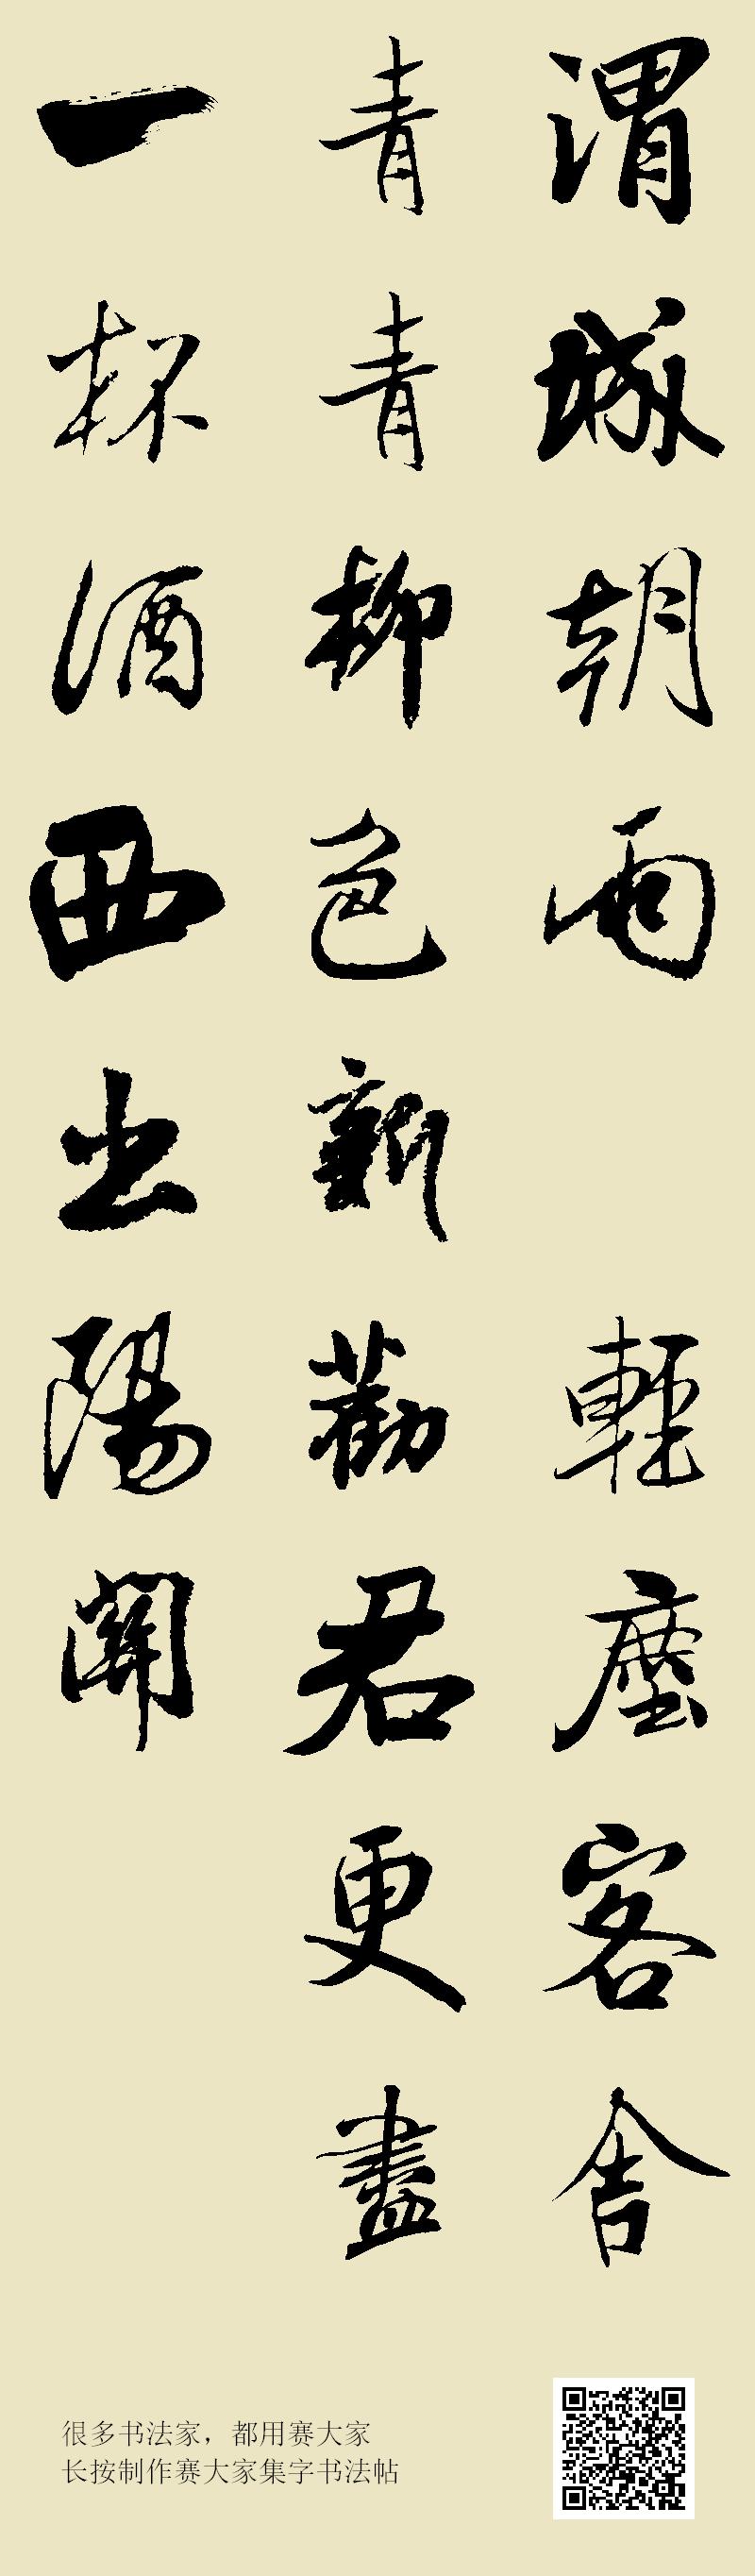 渭城朝雨 輕塵客舍
青青柳色新勸君更盡
一杯酒西出陽關
很多书法家，都用赛大家
长按制作赛大家集字书法帖